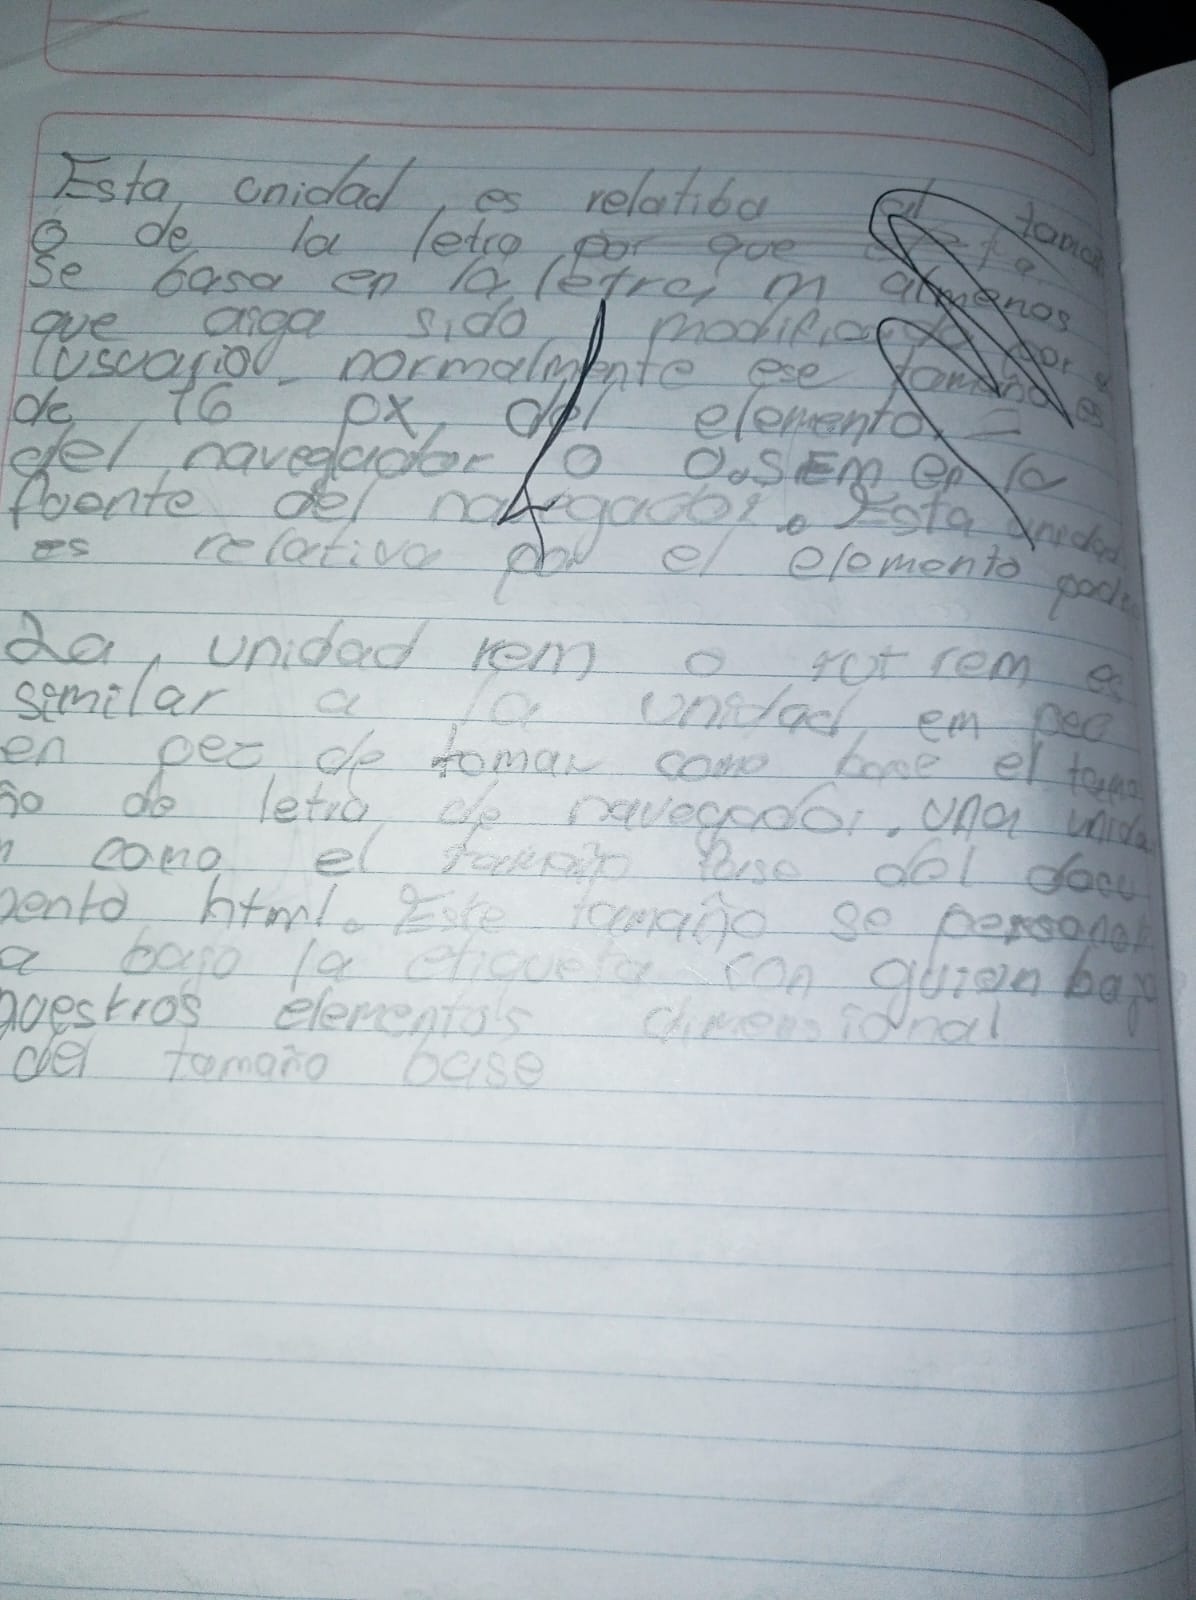 Esta unidad es relatiba al tamañ
o de la letra por que esta
se basa en la letra, m almenos
que aiga sido modificado por e
lusuario normalmente ese tamaño es
de 16 px del elemento =
del navegador o 0.5EM en la
fuente del navegador. Esta unidad
es relativa por el elemento padre
La unidad rem o rot rem es
similar a la unidad em pec
en pez de tomar como base el tama
ño de letra de navegador. una unida
como el tamaño base del docu
mento html. Este tamaño se personal
a bajo la etiqueta con quien baj
nuestros elementos dimensional
del tamaño base